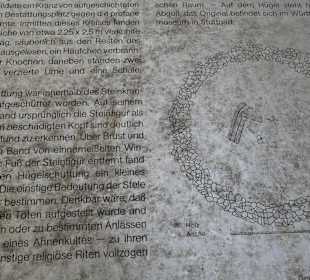 ldete ein Kranz von aufgeschichteten
Bestattungsplatz gegen die profane
Mitte dieses Kreises fanden
von etwa 2,25 x 2,5 m
ag, säuberlich aus den Resten des
ausgelesen, ein Häufchen verbrann-
er Knochen, daneben standen zwei
verzierte Urne und eine Schale.
ttung war innerhalb des Steinkran-
aufgeschüttet worden. Auf seinem
and ursprünglich die Steinfigur als
en beschädigten Kopf und deutlich
ltung zu erkennen. Über Brust und
Band von eingemeißelten Win-
Fuß der Steinfigur entfernt fand
en Hügelschüttung ein kleines
Die einstige Bedeutung der Stele
bestimmen. Denkbar wäre, daß
en Toten aufgestellt wurde und
n oder zu bestimmten Anlässen
eines Ahnenkultes – zu ihren
nstige religiöse Riten vollzogen
schen Raum. – Auf dem Hügel steht
Abguß, das Original befindet sich im Würt
museum in Stuttgart.
Holz
Asche